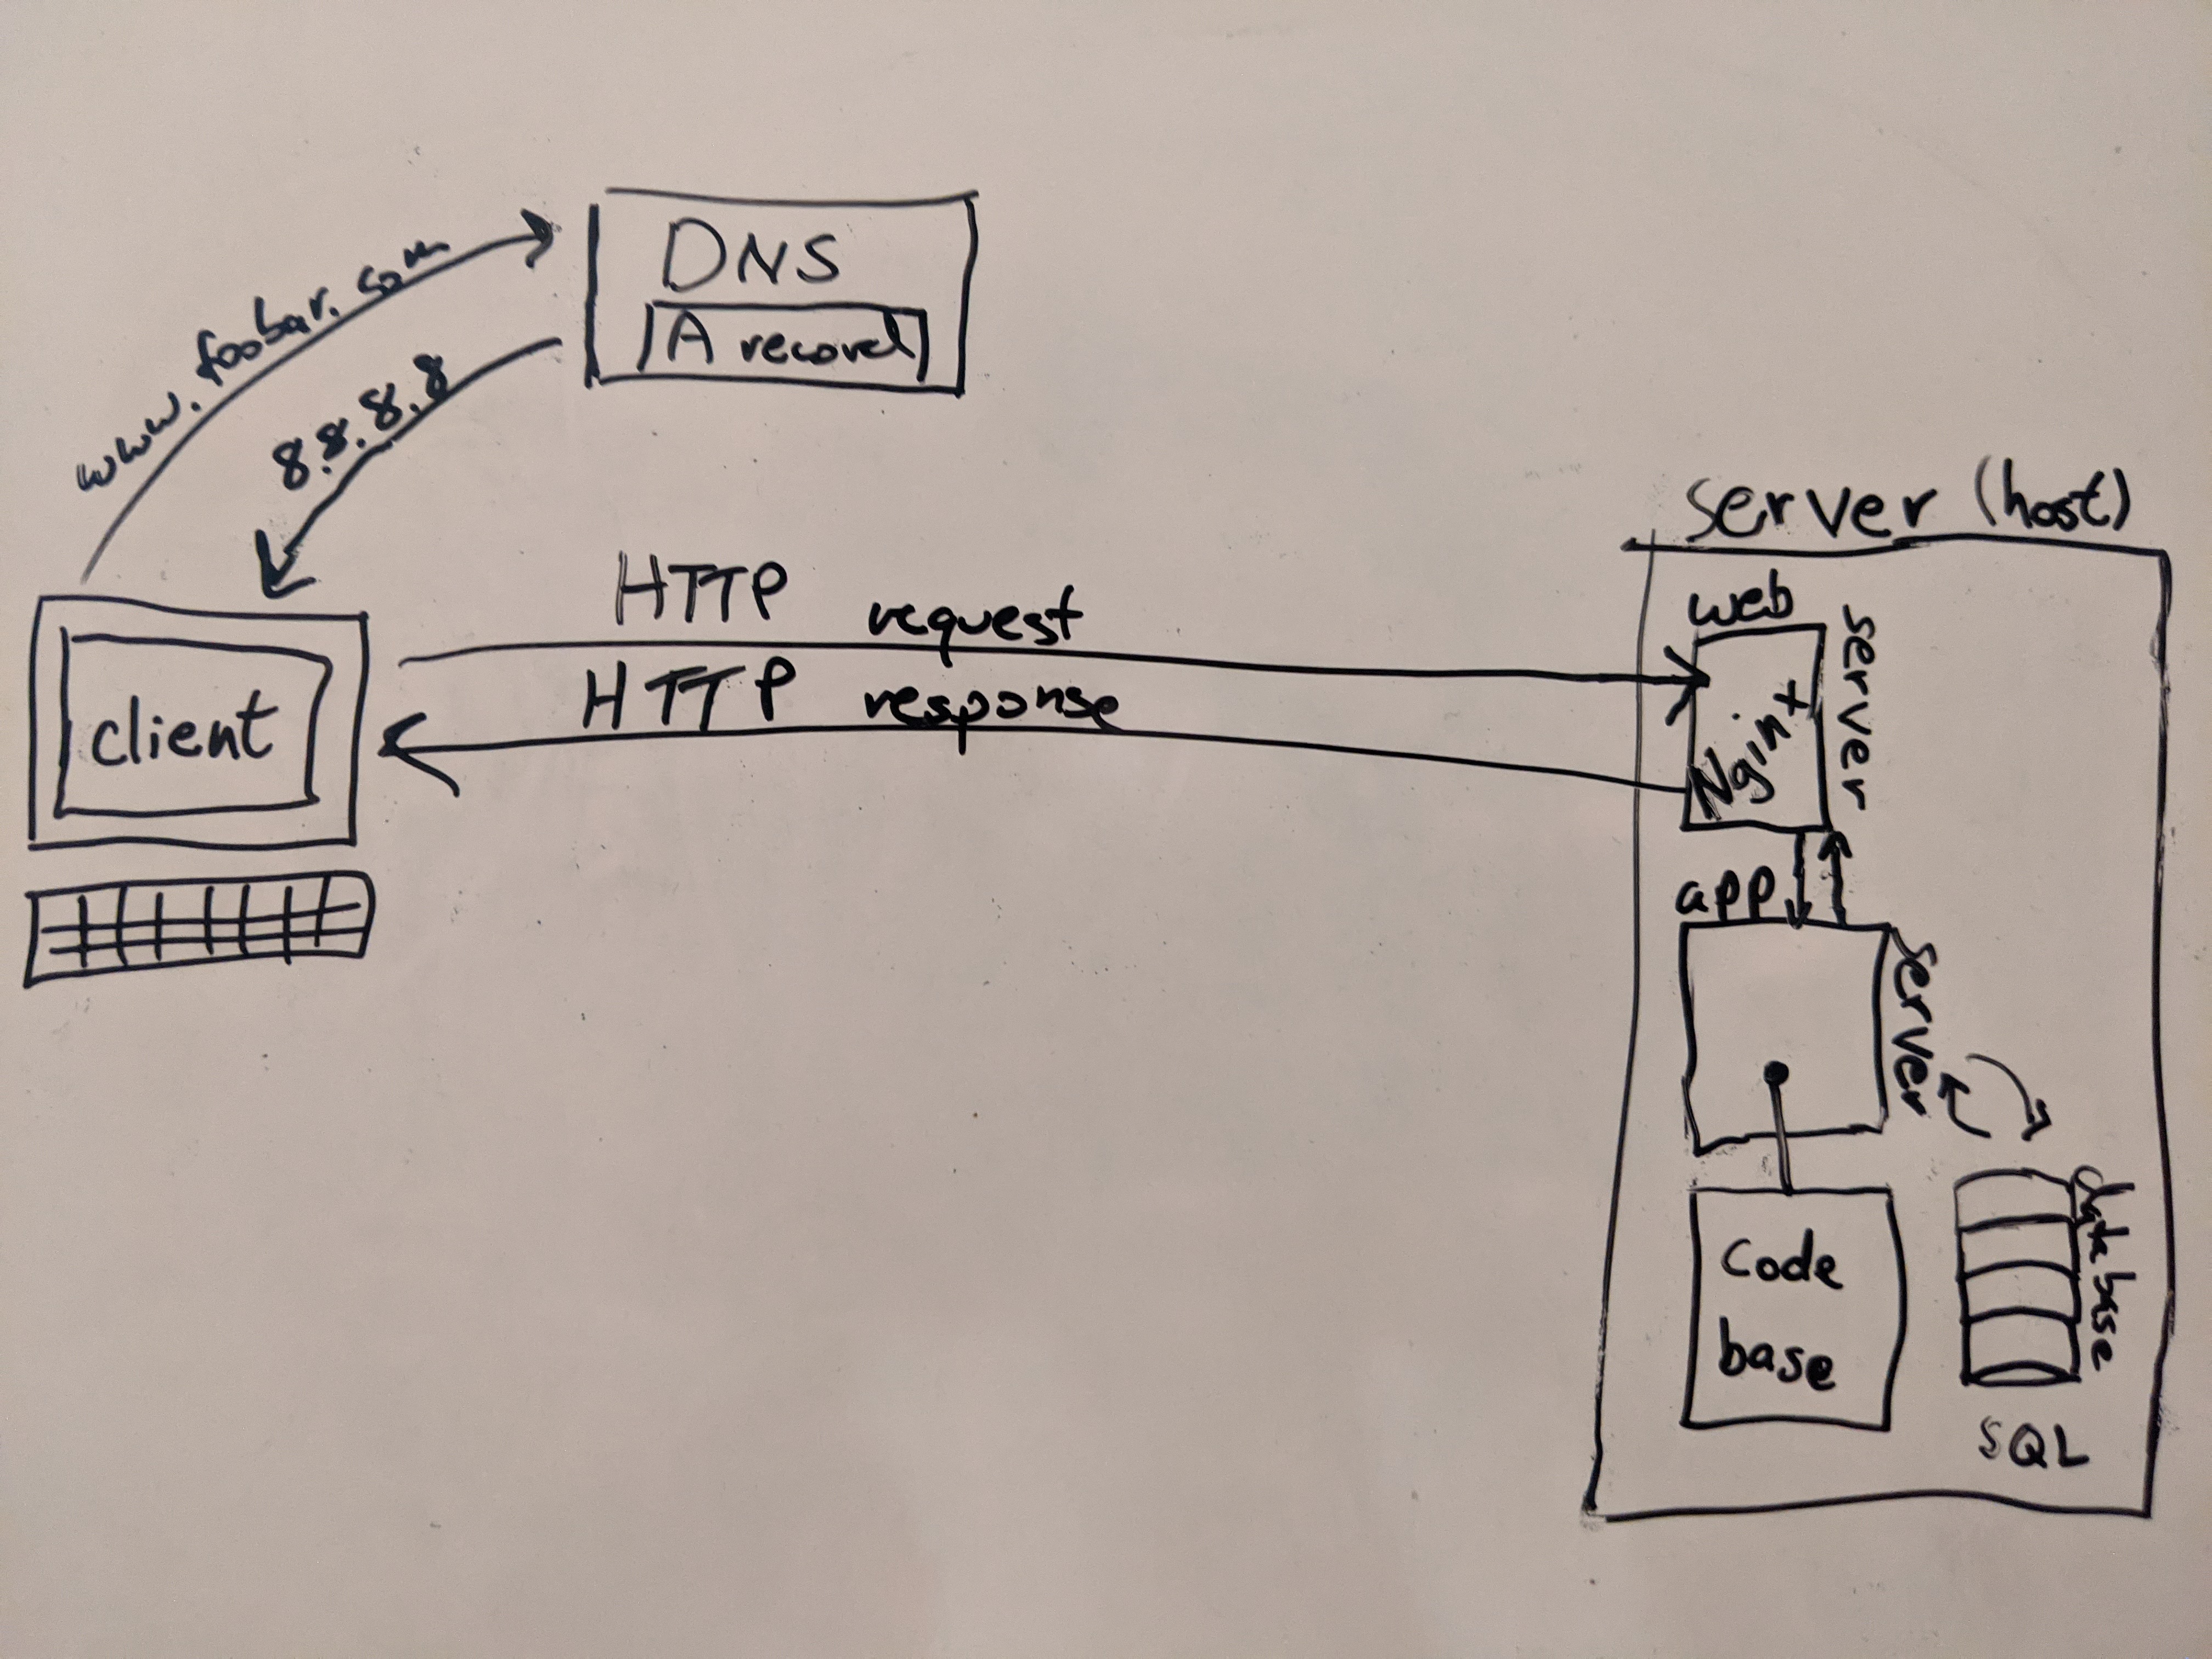 DNS
A record
www.foobar.com
8.8.8.8
server (host)
HTTP request
HTTP response
client
web server
Nginx
app server
Code
base
database
SQL